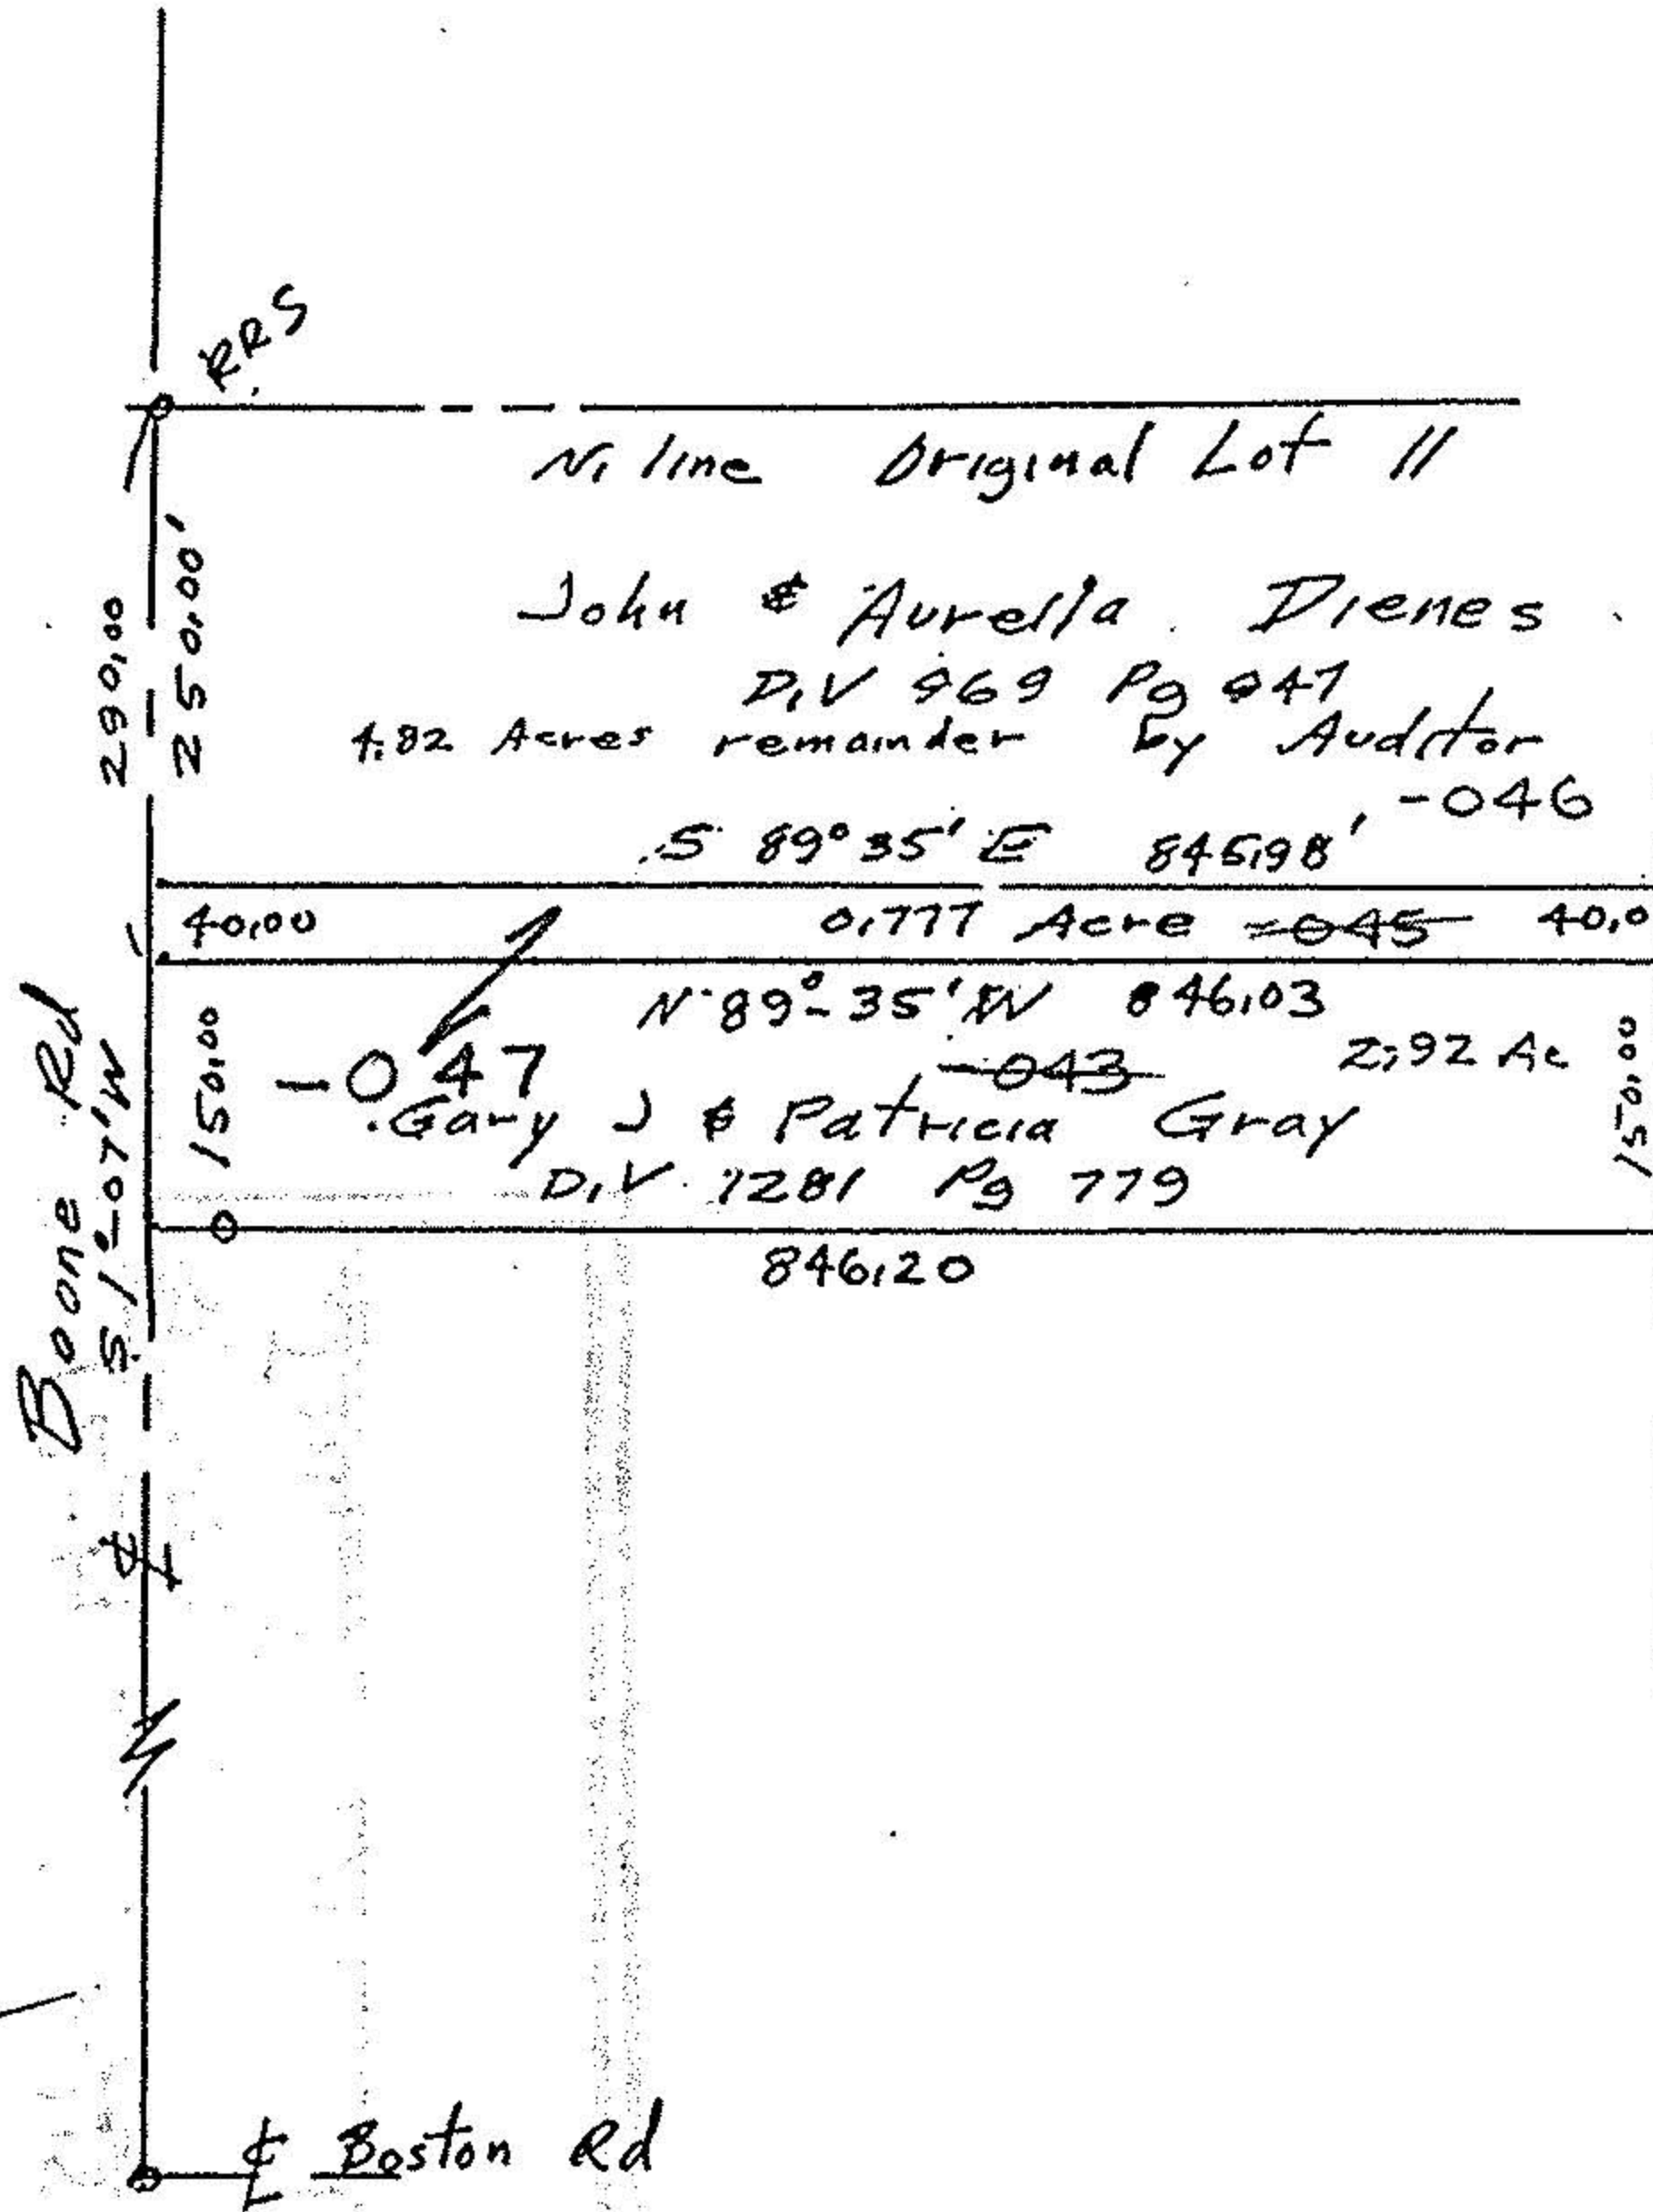 RRS
N. line Original Lot 11
290.00
250.00'
John & Aurella Dienes
D.V 969 Pg 947
4.82 Acres remainder by Auditor
-046
S 89° 35' E 845.98'
40.00 0.777 Acre -045 40.0
N 89°-35' W 846.03
150.00
-047 -043 2.92 Ac
150.00
Gary J & Patricia Gray
D.V. 1281 Pg 779
846.20
Boone Rd
S 1°-07' W
℄
℄ Boston Rd